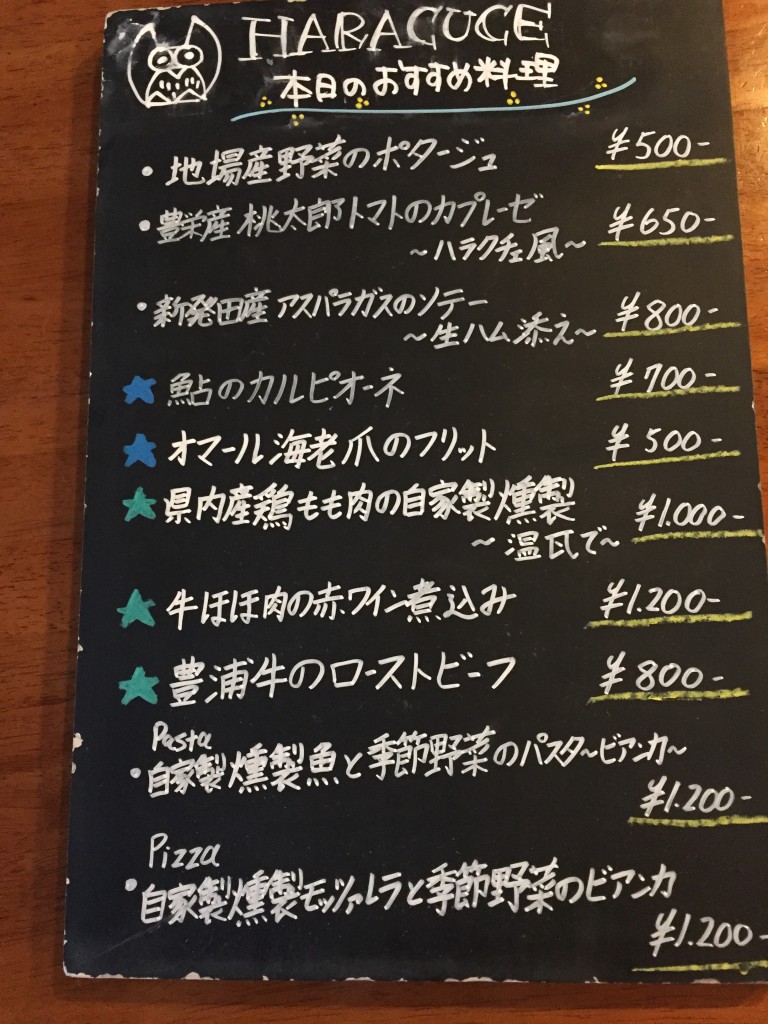 HARACUCE
本日のおすすめ料理
・地場産野菜のポタージュ ¥500-
・豊栄産 桃太郎トマトのカプレーゼ ¥650-
~ハラクチェ風~
・新発田産 アスパラガスのソテー
~生ハム添え~ ¥800-
★ 鮎のカルピオーネ ¥700-
★ オマール海老爪のフリット ¥500-
★ 県内産鶏もも肉の自家製燻製 ¥1.000-
~温瓦で~
★ 牛ほほ肉の赤ワイン煮込み ¥1.200-
★ 豊浦牛のローストビーフ ¥800-
Pasta
・自家製燻製魚と季節野菜のパスタ~ビアンカ~
¥1.200-
Pizza
・自家製燻製モッツァレラと季節野菜のビアンカ
¥1.200-